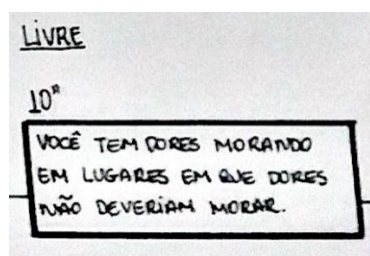 LIVRE
10ª
VOCÊ TEM DORES MORANDO
EM LUGARES EM QUE DORES
NÃO DEVERIAM MORAR.